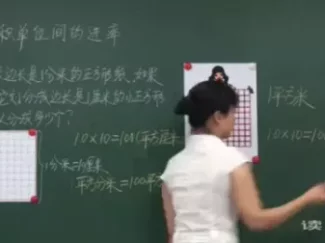 积单位间的进率
边长是1分米的正方形纸,如果
把它分成边长是1厘米的小正方形
分成多少个?
10×10=100(平方厘米
1分米=10厘米
平方分米=100平方
1平方米
10×10=10
读